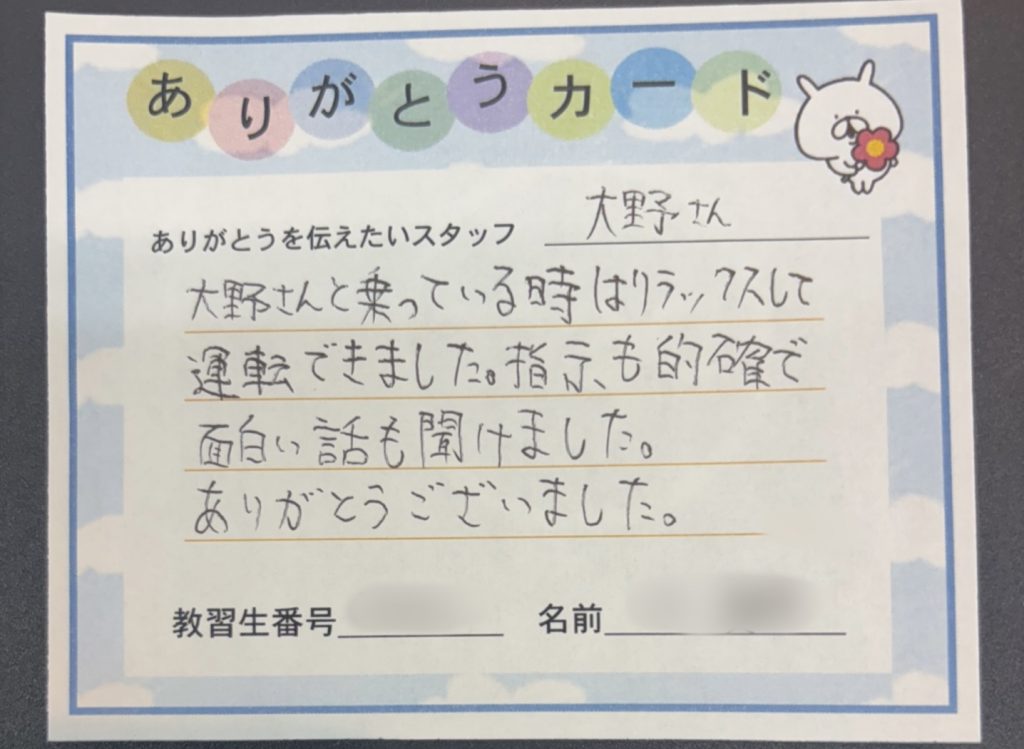 ありがとうカード
ありがとうを伝えたいスタッフ 大野さん
大野さんと乗っている時はリラックスして
運転できました。指示も的確で
面白い話も聞けました。
ありがとうございました。
教習生番号 名前